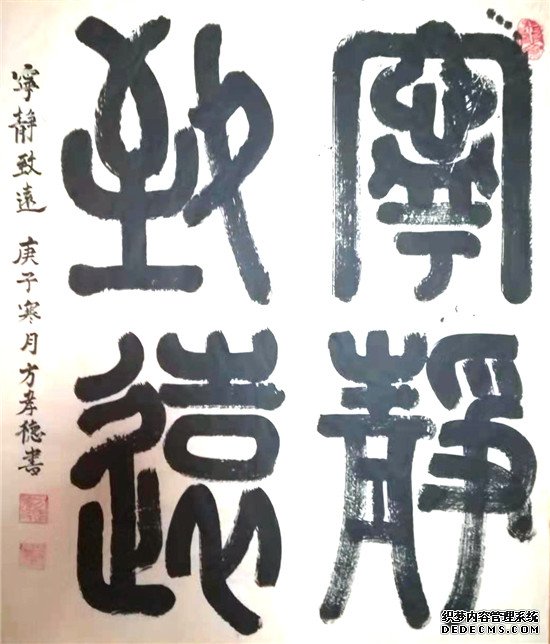 寧靜
致遠
寧靜致遠 庚子寒月方孝德書
织梦内容管理系统
DEDECMS.COM